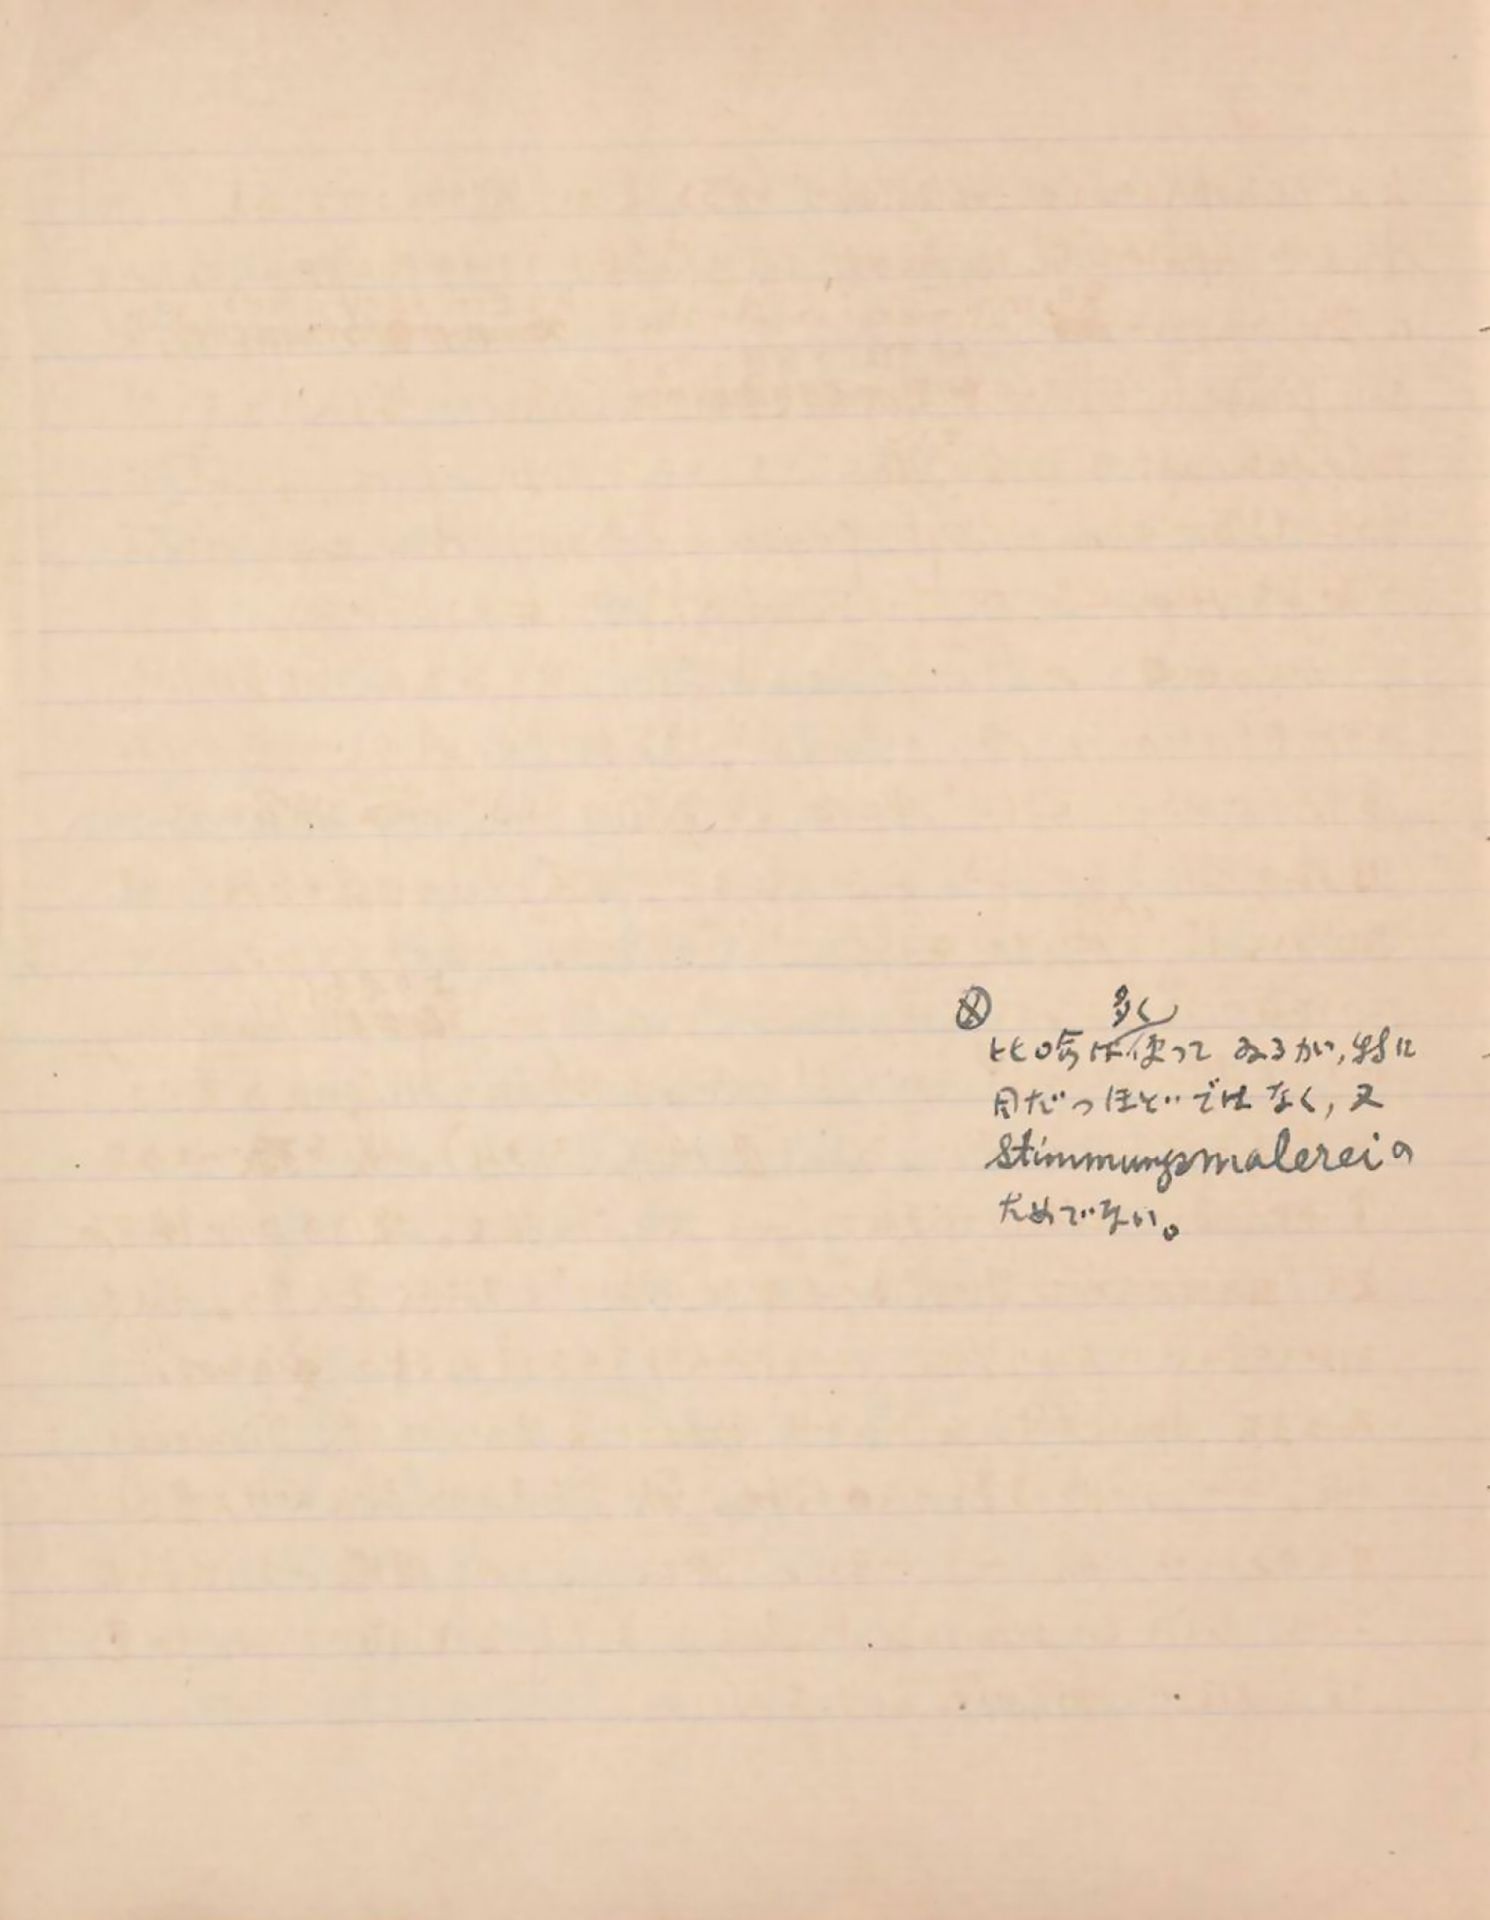 ⊗
比喩は多く使ってゐるが,特に
目だつほどではなく,又
Stimmungsmalereiの
ためでない。